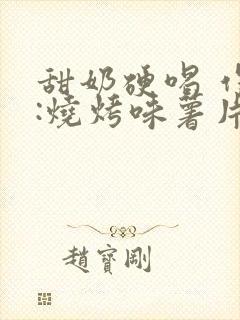 甜奶硬唱
:燒烤味薯片
趙寶剛